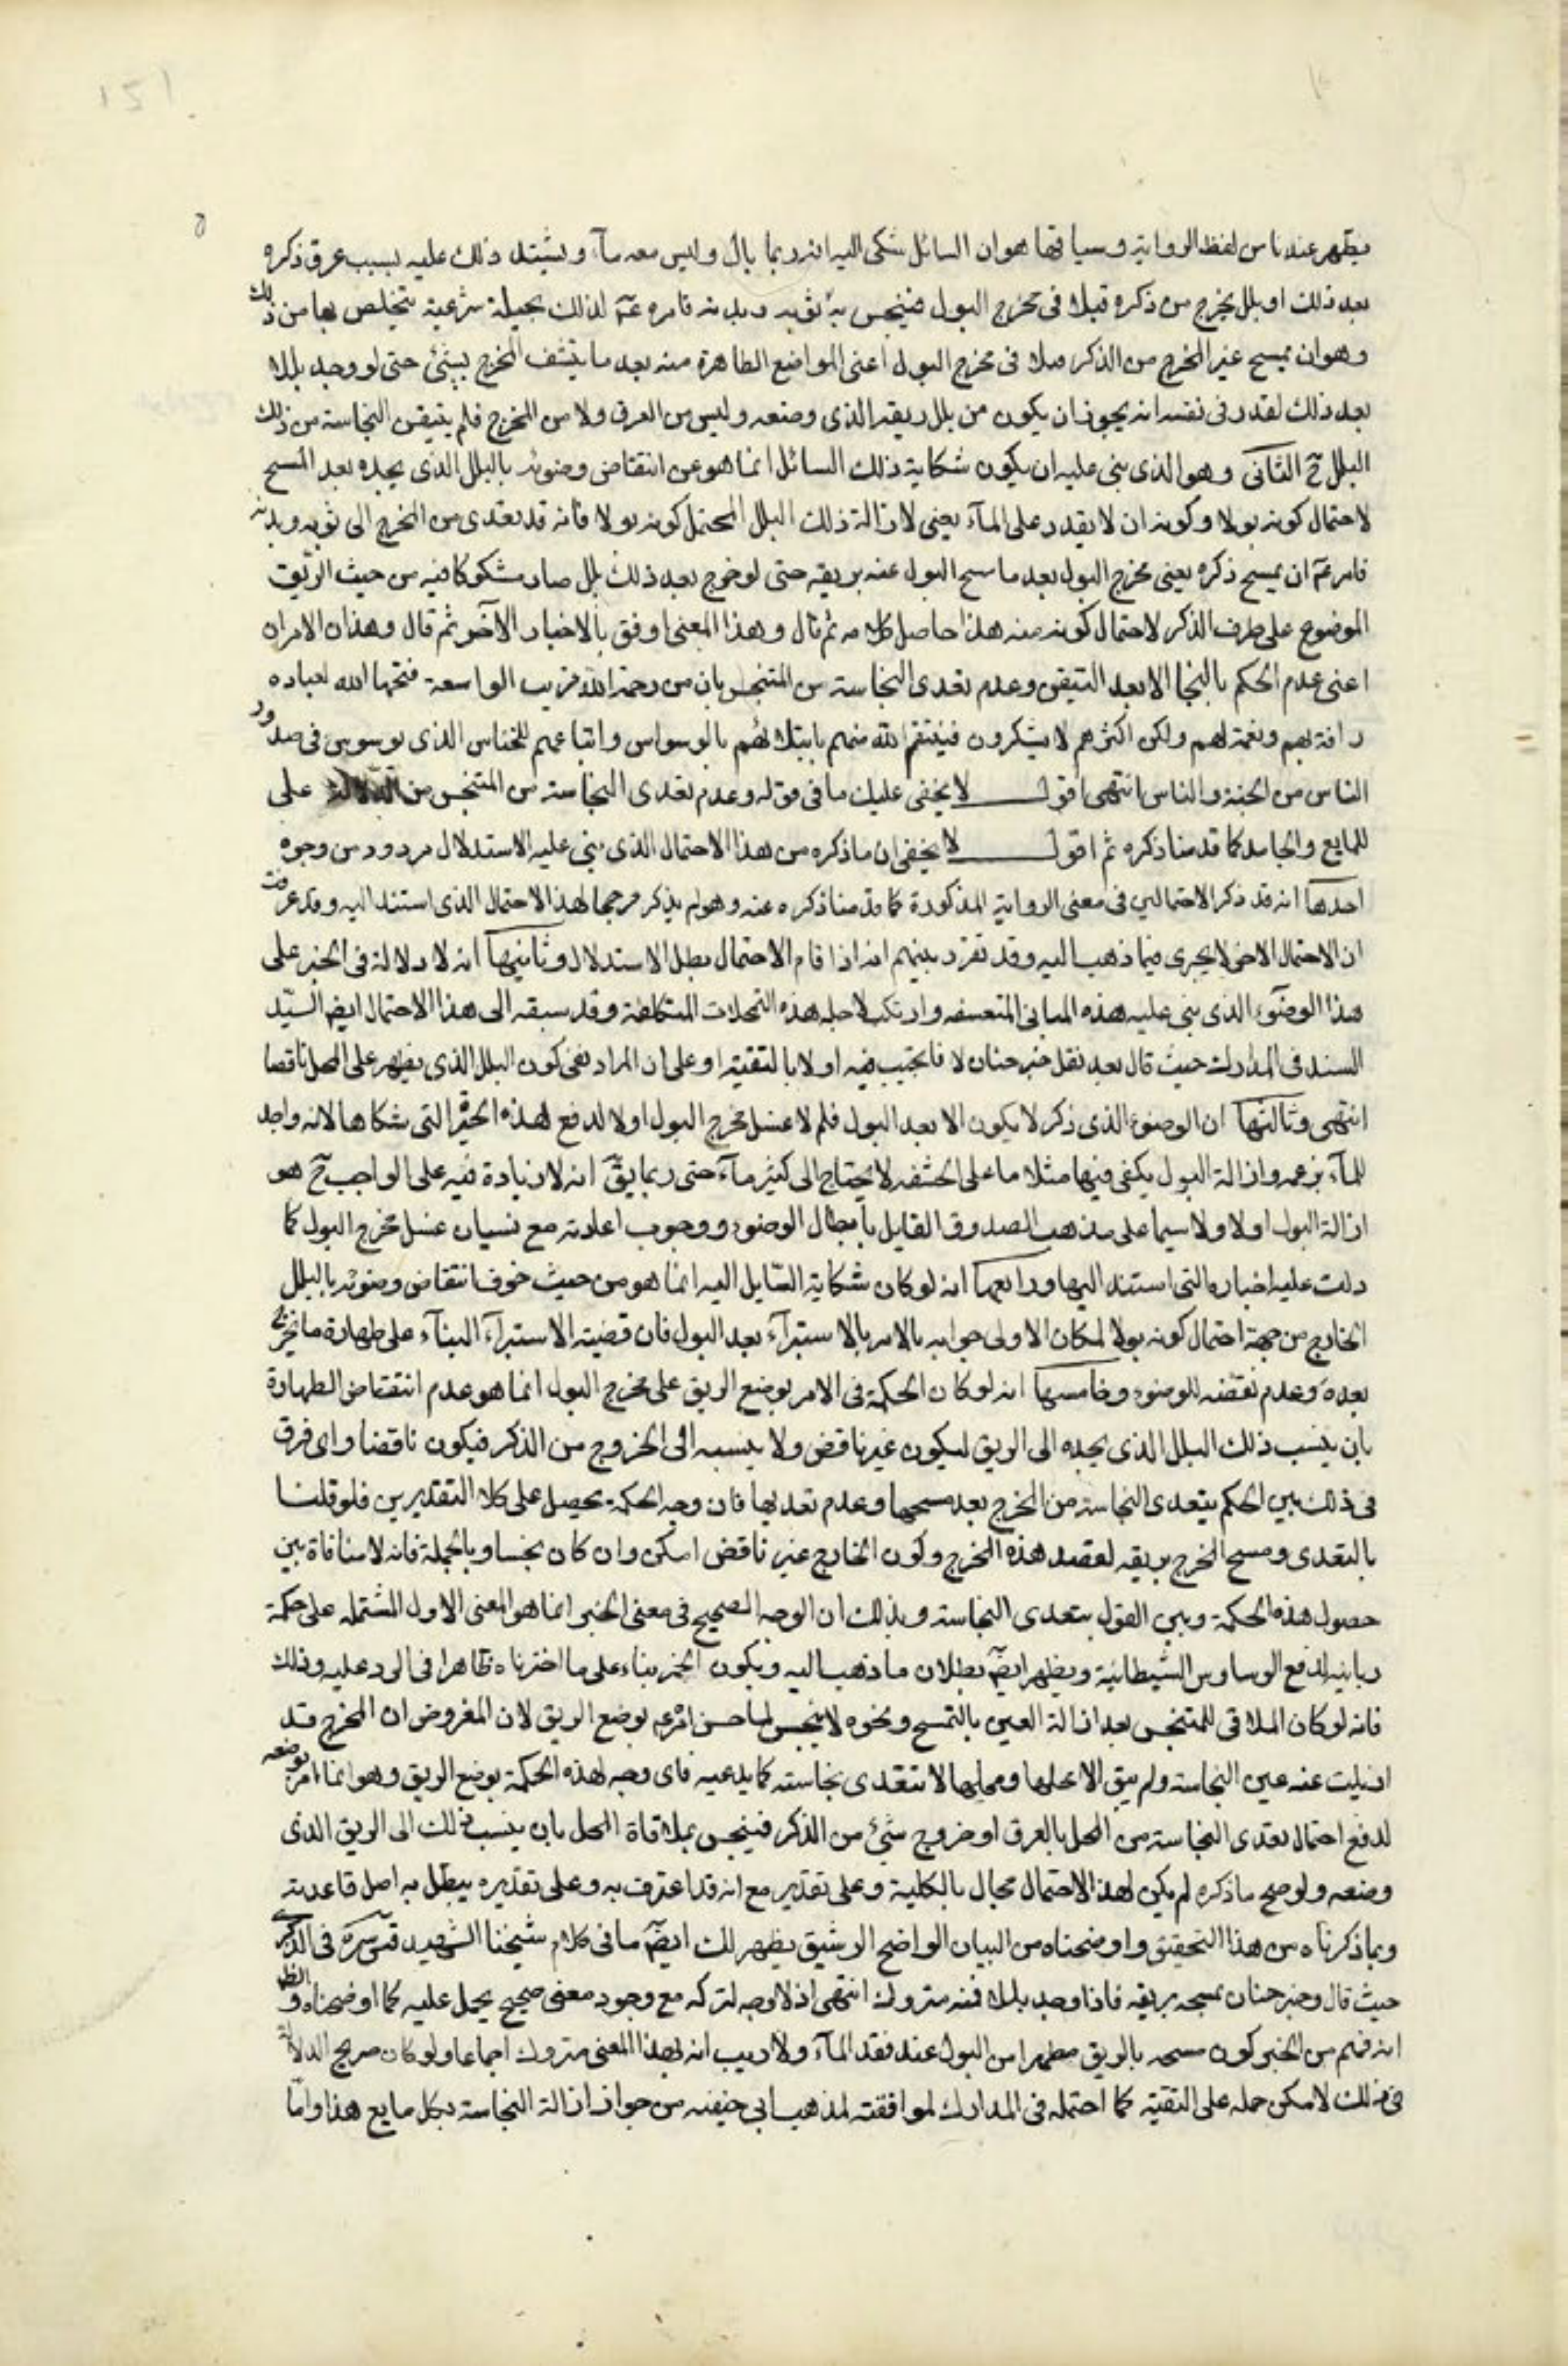 يظهر عندنا من لفظ الرواية وسياقها هو ان السائل شكى اليه انه ربما بال وليس معه مآء ويشتد ذلك عليه بسبب عرق ذكره
بعد ذلك او بلل يخرج من ذكره قبلا فى مخرج البول فينجس به ثوبه وبدنه فامره عم لذلك بحيلة شرعية يتخلص بها من ذلك
وهو ان يمسح غير المخرج من الذكر مبلا فى مخرج البول اعنى المواضع الطاهرة منه بعد ما ينشف المخرج بشئ حتى لو وجد بللا
بعد ذلك لقدر فى نفسه انه يجوز ان يكون من بلل ريقه الذى وضعه وليس من العرق ولا من المخرج فلم يتيقن النجاسة من ذلك
البلل ح الثانى وهو الذى بنى عليه ان يكون شكاية ذلك السائل انما هو عن انتقاض وضوئه بالبلل الذى يجده بعد المسح
لاحتمال كونه بولا وكونه ان لا يقدر على المآء يعنى لازالة ذلك البلل المحتمل كونه بولا فانه قد تعدى من المخرج الى ثوبه وبدنه
فامر عم ان يمسح ذكره يعنى مخرج البول بعد ما مسح البول عنه بريقه حتى لو خرج بعد ذلك بلل صار مشكوكا فيه من حيث الريق
الموضوع على طرف الذكر لاحتمال كونه منه هذا حاصل كلامه ثم قال وهذا المعنى اوفق بالاخبار الآخر ثم قال وهذان الامران
اعنى عدم الحكم بالنجا الا بعد التيقن وعدم تعدى النجاسة من المتنجس بابان من رحمة الله الواسعة فتحهما الله لعباده
رافة بهم ونعمة لهم ولكن اكثرهم لا يشكرون فينتقم الله منهم بابتلائهم بالوسواس واتباعهم للخناس الذى يوسوس فى صدور
الناس من الجنة والناس انتهى اقول لا يخفى عليك ما فى قوله وعدم تعدى النجاسة من المتنجس من الدلالة على
للمايع والجامد كما قدمنا ذكره ثم اقول لا يخفى ان ما ذكره من هذا الاحتمال الذى بنى عليه الاستدلال مردود من وجوه
احدها انه قد ذكر الاحتمالين فى معنى الرواية المذكورة كما قدمنا ذكره عنه وهو لم يذكر مرجحا لهذا الاحتمال الذى استند اليه وقد عرفت
ان الاحتمال الاخر لا يجرى فيما ذهب اليه وقد تقرر بينهم انه اذا قام الاحتمال بطل الاستدلال وثانيها انه لا دلالة فى الخبر على
هذا الوضوء الذى بنى عليه هذه المبانى المتعسفه وارتكب لاجله هذه التمحلات المتكلفة وقد سبقه الى هذا الاحتمال ايض السيّد
السند فى المدارك حيث قال بعد نقل خبر حنان لا فانجيب فيه اولا بالتقية او على ان المراد نفى كون البلل الذى يظهر على المحل ناقصا
انتهى وثالثها ان الوضوء الذى ذكر لا يكون الا بعد البول فلم لا غسل مخرج البول اولا لدفع لهذه الحيرة التى شكاها لانه واجد
للمآء بزعمه وازالة البول يكفى فيها مثلا ما على الحشفه لا يحتاج الى كثير مآء حتى ربما يقّ انه لا زيادة فيه على الواجب ح هو
ازالة البول اولا ولا سيما على مذهب الصدوق القايل بابطال الوضوء ووجوب اعادته مع نسيان غسل مخرج البول كما
دلت عليه اخباره التى استند اليها ورابعها انه لو كان شكاية السّايل اليه انما هو من حيث خوف انتقاض وضوئه بالبلل
الخارج من جهة احتمال كونه بولا لمكان الاولى جوابه بالامر بالاستبرآء بعد البول فان قضية الاستبرآء البنآء على طهارة ما يخرج
بعده وعدم نقضه للوضوء وخامسها انه لو كان الحكمة فى الامر بوضع الريق على مخرج البول انما هو عدم انتقاض الطهارة
بان ينسب ذلك البلل الذى يجده الى الريق ليكون غير ناقض ولا ينسبه الى الخروج من الذكر فيكون ناقضا واى فرق
فى ذلك بين الحكم بتعدى النجاسة من المخرج بعد مسحها وعدم تعديها فان وجه الحكمة يحصل على كلا التقديرين فلو قلنا
بالتعدى ومسح المخرج بريقه لقصد هذه المخرج وكون الخارج غير ناقض امكن وان كان نجسا وبالجملة فانه لا منافاة بين
حصول هذه الحكمة وبين القول بتعدى النجاسة وبذلك ان الوجه الصحيح فى معنى الخبر انما هو المعنى الاول المشتمله على حكمة
ربانية لدفع الوساوس الشيطانية ويظهر ايضّ بطلان ما ذهب اليه ويكون الخبر بناء على ما اخترناه ظاهرا فى الرد عليه وذلك
فانه لو كان الملاقى للمتنجس بعد ازالة العين بالتمسح ونحوه لا ينجس لما حسن امره بوضع الريق لان المفروض ان المخرج قد
ازيلت عنه عين النجاسة ولم يبق الا محلها ومحلها لا تتعدى نجاسته كما يدعيه فاى وجه لهذه الحكمة بوضع الريق وهو انما امر بوضعه
لدفع احتمال تعدى النجاسة من المحل بالعرق او خروج شئ من الذكر فينجس بملاقاة المحل بان ينسب ذلك الى الريق الذى
وضعه ولو صح ما ذكره لم يكن لهذا الاحتمال مجال بالكلية وعلى تقدير مع انه قد اعترف به وعلى تقديره يبطل به اصل قاعدته
وبما ذكرناه من هذا التحقيق واوضحناه من البيان الواضح الرشيق يظهر لك ايضّ ما فى كلام شيخنا الشهيد قدس سره فى الذكرى
حيث قال وخبر حنان بمسحه بريقه فاذا وجد بللا فمنه متروك انتهى اذ لا وجه لتركه مع وجود معنى صحيح يحمل عليه كما اوضحناه والظ
انه فهم من الخبر كون مسحه بالريق مطهرا من البول عند فقد المآء ولا ريب انه بهذا المعنى متروك اجماعا ولو كان صريح الدلالة
فى ذلك لامكن حمله على التقية كما احتمله فى المدارك لموافقته لمذهب ابى حنيفه من جواز ازالة النجاسة بكل مايع هذا وامّا